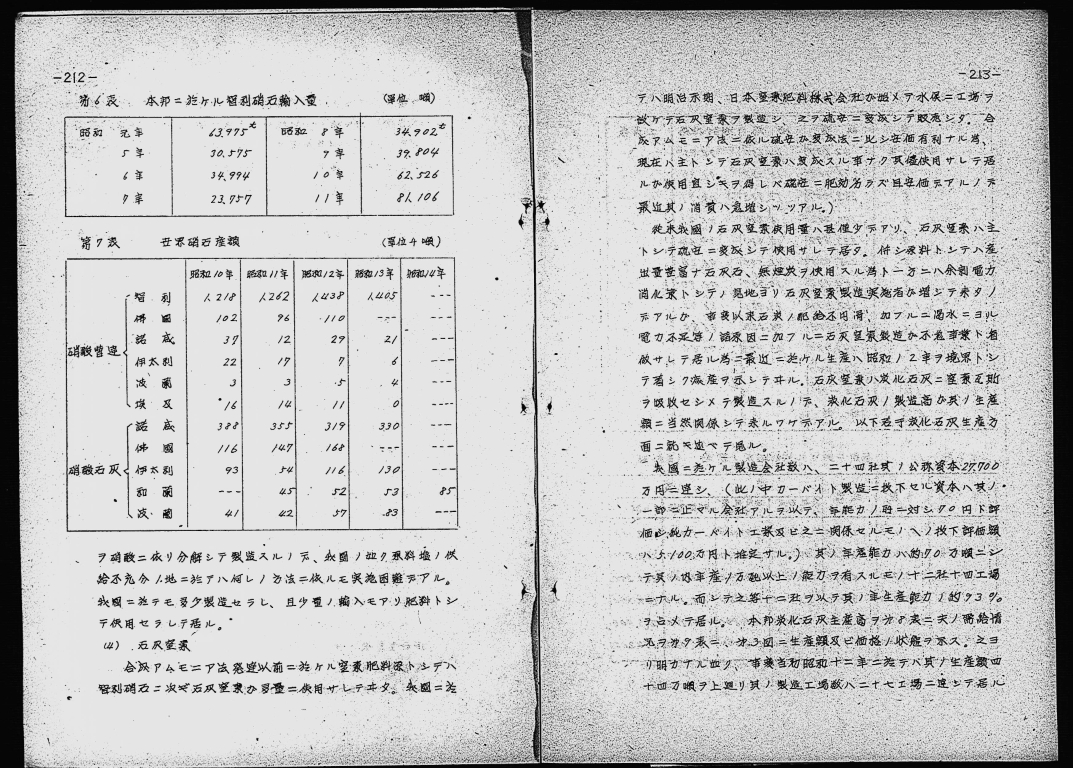 -212-
第6表 本邦ニ於ケル智利硝石輸入量 (單位 噸)
昭和 元年 63,975 昭和 8年 34,902
5年 30,575 9年 39,804
6年 34,994 10年 62,526
7年 23,757 11年 81,106
第7表 世界硝石産額 (單位千噸)
昭和10年 昭和11年 昭和12年 昭和13年 昭和14年
智利 1,218 1,262 1,438 1,405 ---
佛國 102 96 110 --- ---
諾威 37 12 29 21 ---
硝酸曹達 伊太利 22 17 7 6 ---
波蘭 3 3 5 4 ---
埃及 16 14 11 0 ---
諾威 388 355 319 330
佛國 116 147 168 --- ---
硝酸石灰 伊太利 93 54 116 130 ---
和蘭 --- 45 52 53 85
波蘭 41 42 57 83 ---
ヲ硝酸ニ依リ分解シテ製造スルノデ、我國ノ如ク原料塩ノ供
給不充分ノ地ニ於テハ何レノ方法ニ依ルモ実施困難デアル。
我國ニ於テモ多少製造セラレ、且少量ノ輸入モアリ肥料トシ
テ使用セラレテ居ル。
(4) 石灰窒素
合成アムモニア法発達以前ニ於ケル窒素肥料源トシテハ
智利硝石ニ次デ石灰窒素が多量ニ使用サレテヰタ。我國ニ於
-213-
テハ明治末期、日本窒素肥料株式会社が始メテ水俣ニ工場ヲ
設ケテ石灰窒素ヲ製造シ、之ヲ硫安ニ変成シテ販売シタ。合
成アムモニア法ニ依ル硫安が変成法ニ比シ安価有利ナル為、
現在ハ主トシテ石灰窒素ハ変成スル事ナク其儘使用サレテ居
ルが使用宜シキヲ得レバ硫安ニ肥効劣ラズ且安価デアルノデ
最近其ノ消費ハ急増シツツアル。)
従来我國ノ石灰窒素使用量ハ甚僅少デアリ、石灰窒素ハ主
トシテ硫安ニ変成シテ使用サレテ居タ。併シ原料トシテハ産
出量豊富ナ石灰石、無煙炭ヲ使用スル為ト一方ニハ余剰電力
消化策トシテノ見地ヨリ石灰窒素製造実施者が増シテ来タノ
デアルが、事変以来石炭ノ配給不円滑、加フルニ渇水ニヨル
電力不足等ノ諸原因ニ加フルニ石灰窒素製造が不急事業ト看
做サレテ居ル為ニ最近ニ於ケル生産ハ昭和12年ヲ境界トシ
テ著シク減産ヲ示シテヰル。石灰窒素ハ炭化石灰ニ窒素瓦斯
ヲ吸收セシメテ製造スルノデ、炭化石灰ノ製造高が其ノ生産
額ニ当然関係シテ来ルワケデアル。以下若干炭化石灰生産方
面ニ就キ述ベテ見ル。
我國ニ於ケル製造会社数ハ、二十四社其ノ公称資本27,700
万円ニ達シ、(此ノ中カーバイト製造ニ投下セル資本ハ其ノ
一部ニ止マル会社アルヲ以テ、年能力ノ瓲一対シ70円ト評
価シ純カーバイト工業及ビ之ニ関係セルモノヘノ投下評価額
ハ5,100万円ト推定サル。) 其ノ年産能力ハ約70万噸ニシ
テ其ノ内年産1万瓲以上ノ能力ヲ有スルモノ十二社十四工場
ニナル。而シテ之等十二社ヲ以テ其ノ年生産能力ノ約93%
ヲ占メテ居ル。本邦炭化石灰生産高ヲ第8表ニ示ノ需給情
況ヲ第9表ニ、第3図ニ生産額及ビ価格ノ状態ヲ示ス。之ヨ
リ明カナル如ク、事変当初昭和十二年ニ於テハ其ノ生産額四
十四万噸ヲ上廻リ其ノ製造工場数ハ二十七工場ニ達シテ居ル